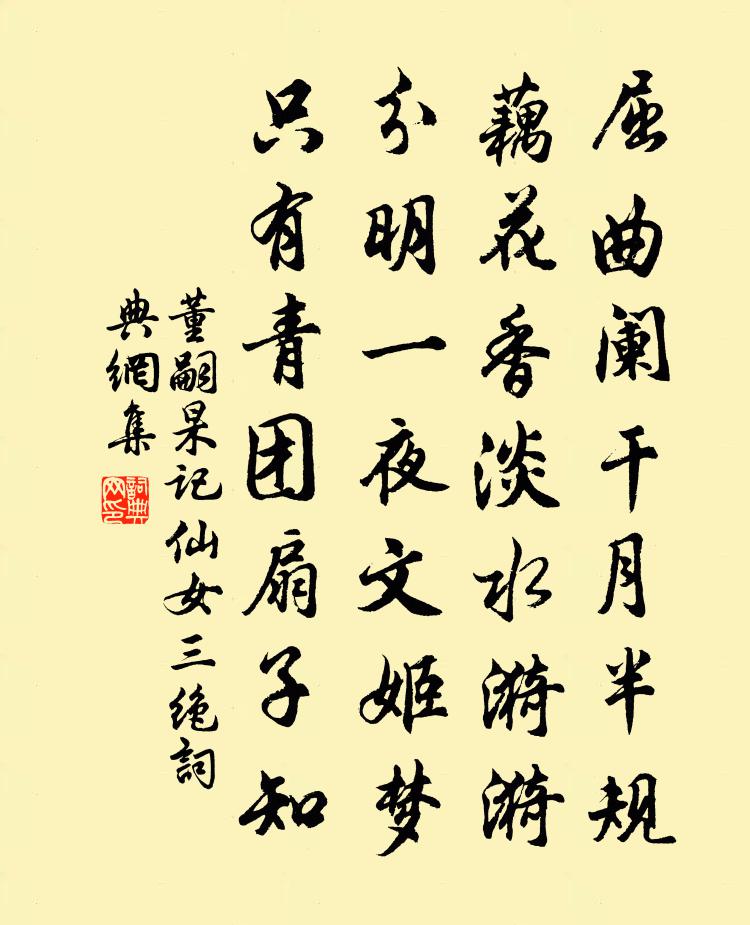 屈曲阑干月半规
藕花香淡水漪漪
分明一夜文姬梦
只有青团扇子知
董嗣杲记仙女三绝詞
典網集
詞典网印